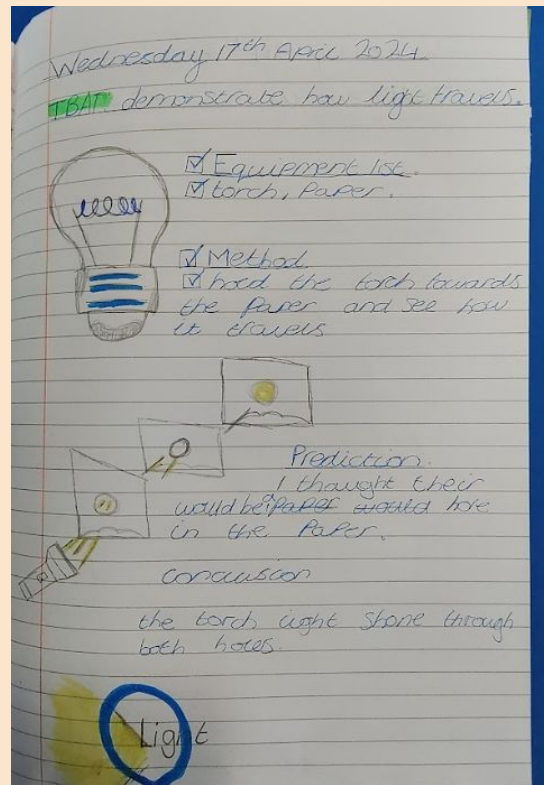 Wednesday 17th April 2024
TBAT demonstrate how light travels.
Equipment list.
torch, Paper.
Method
hold the torch towards
the Paper and see how
it travels
Prediction.
I thought their
would be a paper would hole
in the Paper.
conclusion
the torch light shone through
both holes.
Light